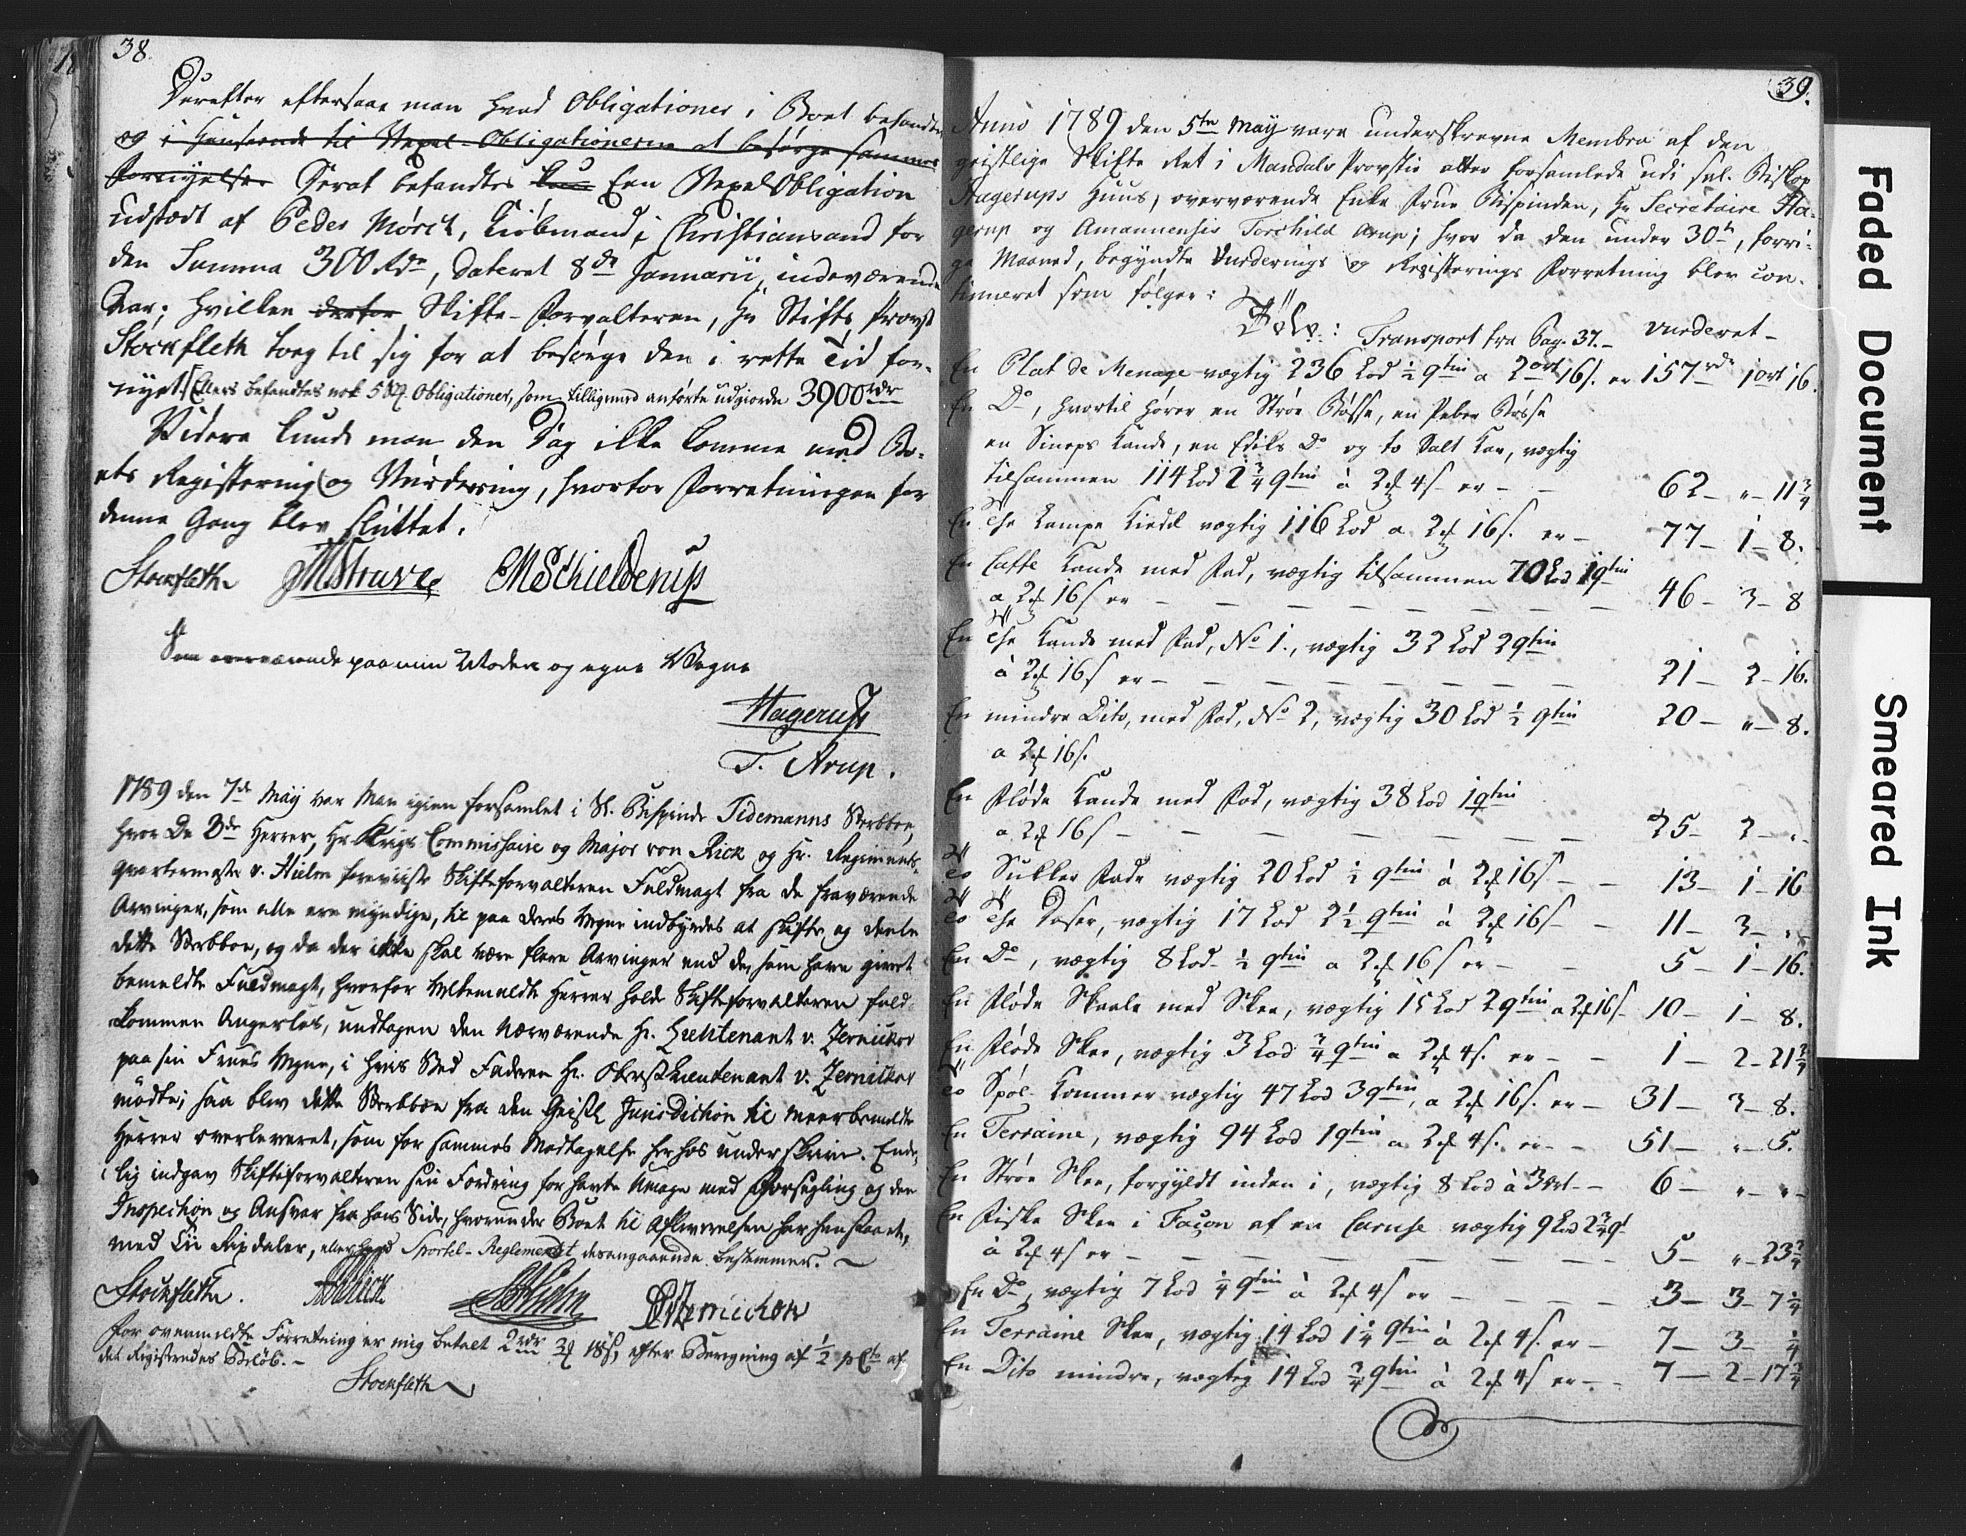 38.
Derefter eftersaae man hvad Obligationer i Boet befandtes
og i Henseende til Vexel-Obligationerne at besørge sammes
Fornyelse. Deraf befandtes kun Een Vexel Obligation
udstædt af Peder Mørch, Kiöbmand i Christiansand for
den Summa 300 Rdr, dateret 8de Januarii indeværende
Aar; hvilken derfor Skifte-Forvalteren, Hr Stifts Provst
Stockfleth tog til sig for at besørge den i rette Tid for-
nyet. Ellers befandtes nok 5 Obligationer, som tilligemed anførte udgiorde 3900 rdr
Videre kunde man den Dag ikke komme med Bo-
ets Registering og Vurdering, hvorfor Forretningen for
denne Gang blev sluttet.
Stockfleth JMStruve CMSchielderup
Som overværende paa min Moders og egne Vegne
Hagerup
T. Arup.
1789 den 7de May var Man igien forsamlet i Sl. Bispinde Tidemanns Sterbboe,
hvor De Hrr Herrer, Hr Krigs Commissaire og Major von Rick og Hr. Regiments-
qvartermester v. Hielm foreviiste Skifteforvalteren Fuldmagt fra de fraværende
Arvinger, som alle ere myndige, til paa deres Vegne indbyrdes at skifte og deele
dette Sterbboe, og da der ikke skal være flere Arvinger end de, som have givet
bemeldte Fuldmagt, hvorfor Velbemeldte Herrer holde Skifteforvalteren fuld-
kommen Angerløs, undtagen den nærværende Hr. Lieutenant v. Zernichow
paa sin Frues Vegne, i hvis Sted Faderen Hr. Oberstlieutenant v. Zernichow
mödte; saa blev dette Sterbboe fra den Geistl. Jurisdiction til meerbemeldte
Herrer overleveret, som for sammes Modtagelse herhos underskrive. Ende-
lig indgav Skifteforvalteren sin Fordring for havte Umage med Forsegling og den
Inspection og Ansvar fra hans Side, hvorunder Boet til Afleverelsen har henstaaet,
med Rixdaler, eller hvad Sportel-Reglementet desangaaende bestemmer.
Stockfleth. Rick Hielm Zernichow
For ovenmeldte Forretning er mig betalt 2 rdr 3 18 s, efter Beregning af 1/2 p Ct af
det Registeredes Beløb.
Stockfleth
39.
Anno 1789 den 5te May vare underskrevne Membra af den
geistlige Skifte Ret i Mandals Provstie atter forsamlede udi sal. Biskop
Hagerups Huus, overværende Enke Frue Bispinden, Hr Secretaire Ha-
gerup og Amanuensis Torchild Arup; hvor da den under 30te, forri-
ge Maaned, begyndte Vurderings og Registerings Forretning blev con-
tinueret som følger:
Sølv: Transport fra Pag. 37. vurderet
En Plat de Menage vægtig 236 Lod 1/2 qtin a 2 ort 16 s. er 157 rdr 1 ort 16.
En Do, hvortil hører en Strøe Bøsse, en Peber Bøsse
en Sineps Kande, en Ediks Do og to Salt Kar, vægtig
tilsammen 114 Lod 2 3/4 qtin à 2 4 s er 62 - " - 11 3/4
En The Lampe Kiedel vægtig 116 Lod a 2 16 s. er 77 - 1 - 8.
En Caffe Kande med Fad, vægtig tilsammen 70 Lod 1 qtin
a 2 16 s er 46 - 3 - 8
En The Kande med Fad, No 1., vægtig 32 Lod 2 qtin
à 2 16 s er 21 - 2 - 16.
En mindre Dito, med Fad, No 2, vægtig 30 Lod 1/2 qtin 20 - " - 8.
a 2 16 s.
En Fløde Kande med Fad, vægtig 38 Lod 1 qtin
a 2 16 s 25 - 2 - ".
To Sukker Fade vægtig 20 Lod 1/2 qtin à 2 16 s 13 - 1 - 16
To The Daser, vægtig 17 Lod 2 1/2 qtin à 2 16 s 11 - 3 - "
En Do, vægtig 8 Lod 1/2 qtin a 2 16 s er 5 - 1 - 16.
En Fløde Skaale med Skee, vægtig 15 Lod 2 qtin a 2 16 s 10 - 1 - 8.
En Fløde Skee, vægtig 3 Lod 3/4 qtin a 2 4 s. er 1 - 2 - 21 3/4
To Spøl Kommer vægtig 47 Lod 3 qtin, a 2 16 s. er 31 - 3 - 8.
En Terraine, vægtig 94 Lod 1 qtin a 2 4 s. er 51 - " - 5.
En Strøe Skee, forgyldt inden i, vægtig 8 Lod à 3 ort 6 - " - "
En Fiske Skee i Façon af en Caruse vægtig 9 Lod 2 3/4 q
à 2 4 s er 5 - " - 23 3/4
En Do, vægtig 7 Lod 1/4 qtin à 2 4 s er 3 - 3 - 7 1/4
En Terraine Skee, vægtig 14 Lod 1 1/4 qtin à 2 4 s. er 7 - 3 - 1/4
En Dito mindre, vægtig 14 Lod 3/4 qtin à 2 4 s er 7 - 2 - 17 3/4
Faded Document
Smeared Ink